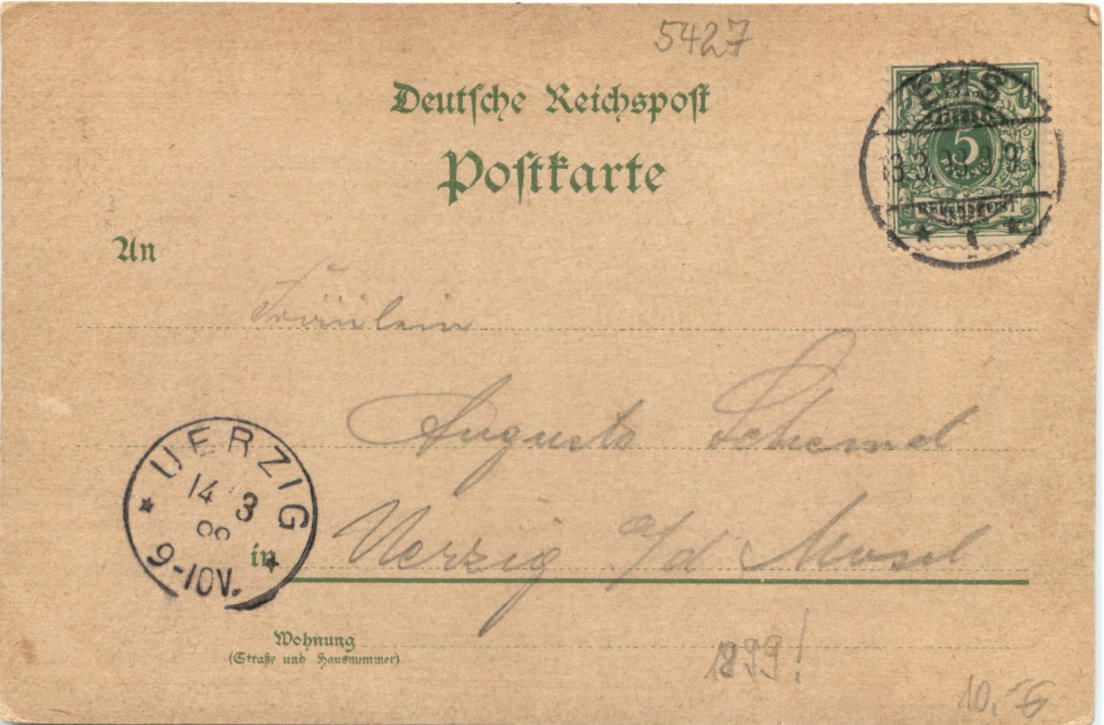 5427
Deutsche Reichspost
Postkarte
EMS
13.3.99.8-9
5
REICHSPOST
An
Fräulein
Auguste Schemel
UERZIG
14 3
99
9-10V.
in Uerzig a/d Mosel
Wohnung
(Straße und Hausnummer)
1899!
10.-